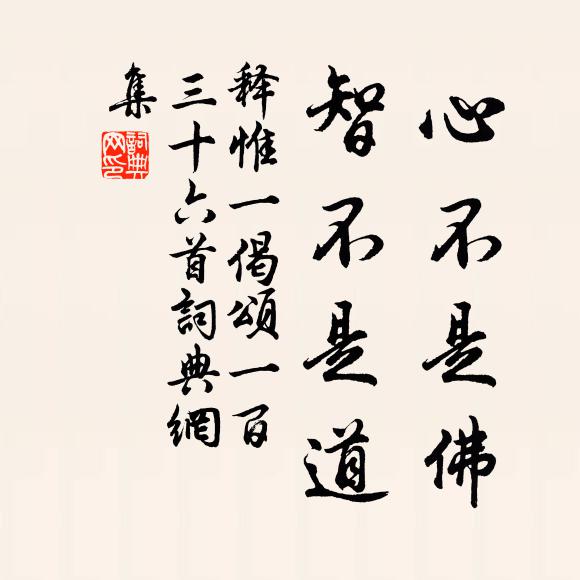 心不是佛
智不是道
释惟一偈頌一百
三十六首詞典網
集
詞典网印